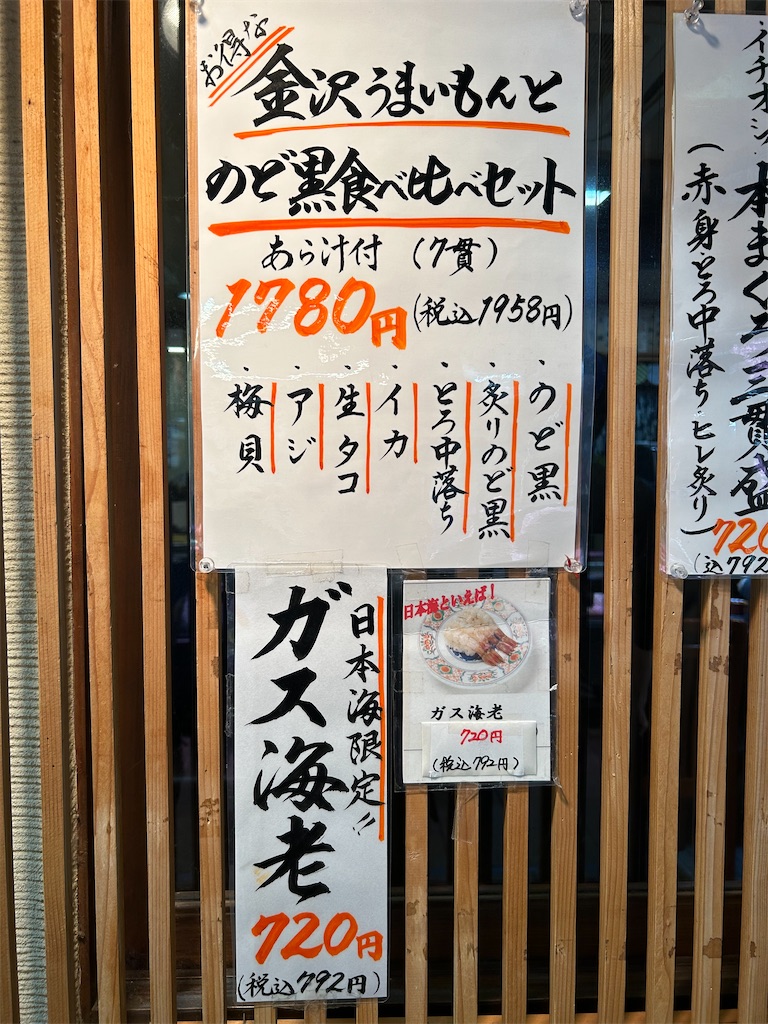 お得な
金沢うまいもんと
のど黒食べ比べセット
あら汁付 (7貫)
1780円(税込1958円)
・のど黒
・炙りのど黒
・とろ中落ち
・イカ
・生タコ
・アジ
・梅貝
日本海限定!!
ガス海老
720円
(税込792円)
日本海といえば!
ガス海老
720円
(税込792円)
イチオシ
本まぐろ三貫盛
(赤身とろ中落ちヒレ炙り)
720
(込792